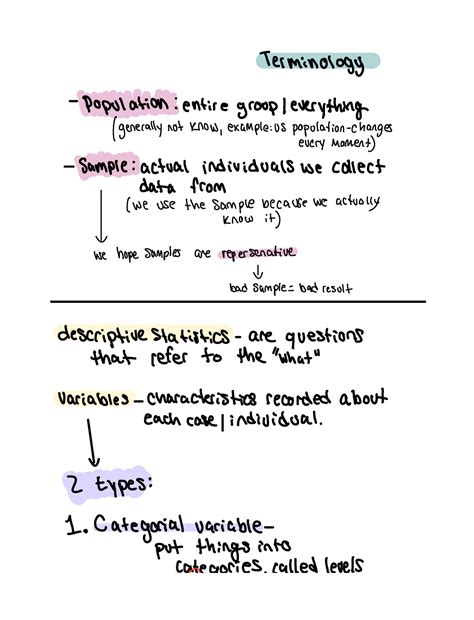 Terminology
- Population: entire group/everything
(generally not know, example: US population-changes
every moment)
- Sample: actual individuals we collect
data from
(we use the sample because we actually
know it)
we hope samples are repersenative
bad sample = bad result
descriptive statistics - are questions
that refer to the "what"
variables - characteristics recorded about
each case/individual.
2 types:
1. Categorial variable-
put things into
categories, called levels